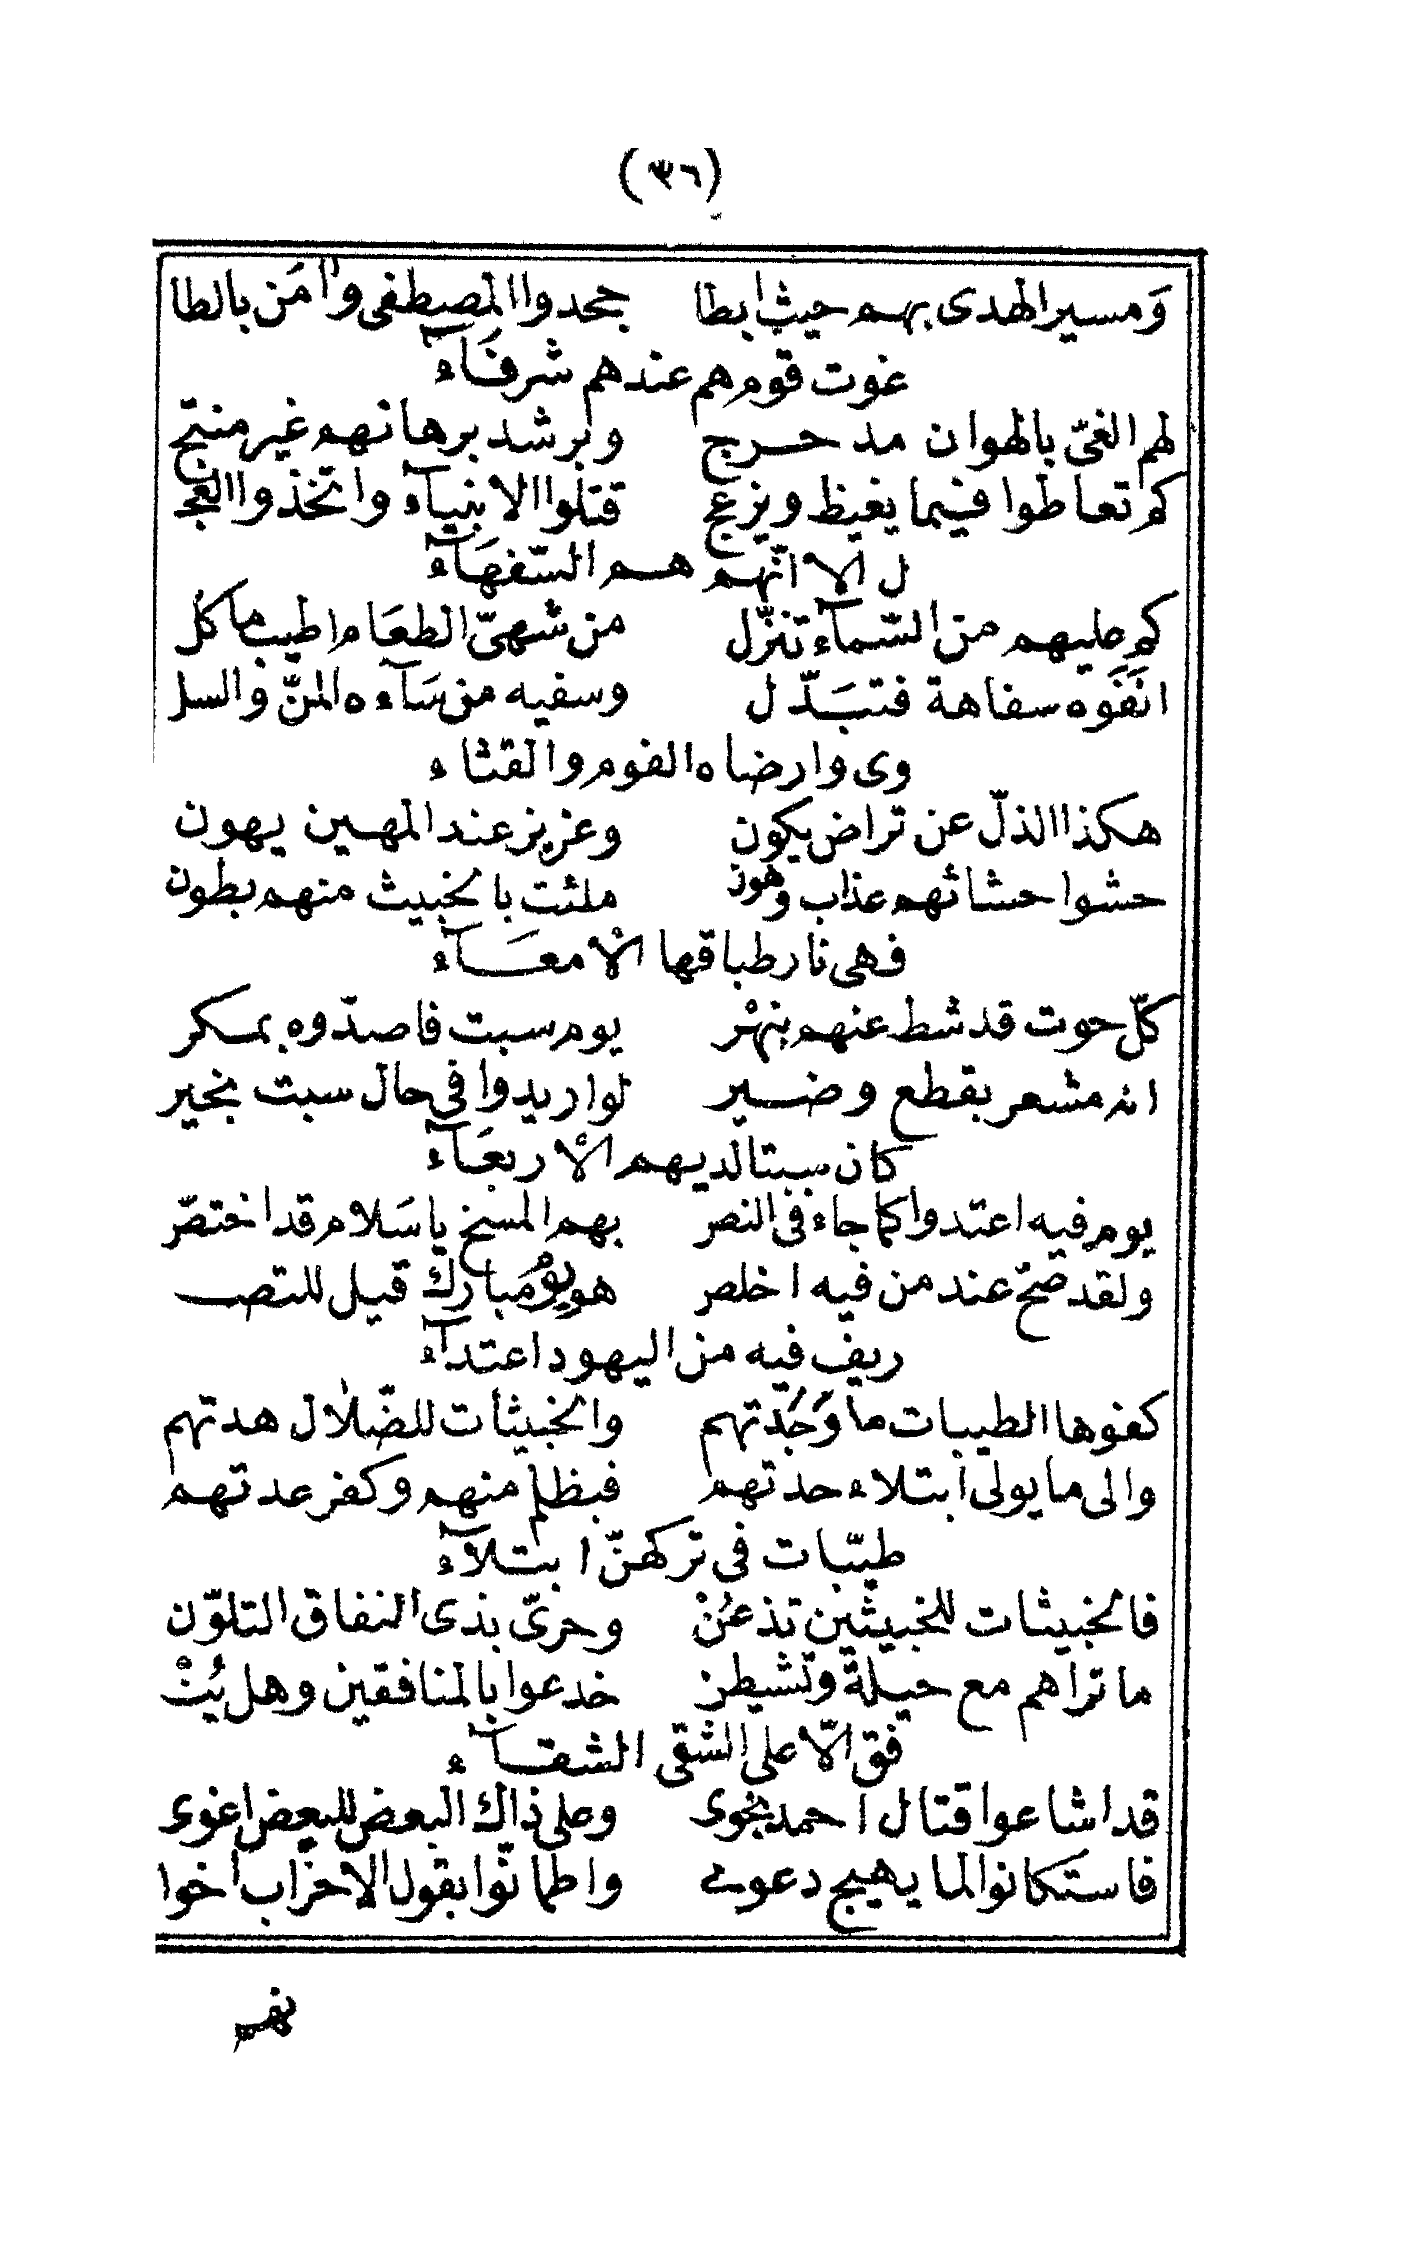 (٣٦)
وَمسير الهدى بهم حيث ابطا جحدوا المصطفى وآمَن بالطا
غوت قوم هم عندهم شرفَآء
لهم الغىّ بالهوان مد حرج وبرشد برهانهم غير منتج
كم تعاطوا فيما يغيظ ويزعج قتلوا الانبيآء واتخذوا العج
ل الا انّهم هم السّفهَآء
كم عليهم من السّمآء تنزّل من شهىّ الطعَام اطيب ماكل
انفَقَوه سفاهة فتبَدّل وسفيه من سَآءه المنّ والسل
وى وارضاه الفوم والقثاء
هكذا الذلّ عن تراض يكون وعزيز عند المهين يهون
حشوا حشائهم عذاب وهون ملئت بالخبيث منهم بطون
فهى نار طباقها الأمعَآء
كلّ حوت قد شط عنهم بنهْر يوم سبت فاصدّوه بمكر
انه مشعر بقطع وضير لو اريدوا في حال سبت بخير
كان سبتا لديهم الأربعَآء
يوم فيه اعتدوا كما جاء في النصر بهم المسخ ياسَلام قد اختصّر
ولقد صحّ عند من فيه اخلصر هو يومٌ مبارك قيل للتص
ريف فيه من اليهود اعتدآء
كفوها الطيبات ما وَجَدّتهم والخبيثات للضّلال هدتهم
والى ما يولى ابتلاء حدتهم فبظلم منهم وكفر عدتهم
طيّبات في تركهنّ ابتلآء
فالخبيثات للخبيثين تذعنْ وحرىّ بذى النفاق التلوّن
ما تراهم مع حيلة وتشيطن خدعوا بالمنافقين وهل يُنْ
فق الّا على الشقى الشقآء
قد اشاعوا قتال احمد نجوى وعلى ذاك البعض للبعض اغوى
فاستكانوا لما يهيج دعوى واطمانّوا بقول الاحزاب اخوا
نهم